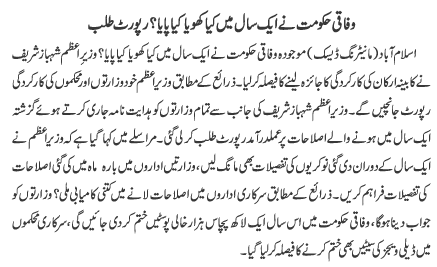 وفاقی حکومت نے ایک سال میں کیا کھویا کیا پایا؟ رپورٹ طلب
اسلام آباد (مانیٹرنگ ڈیسک) موجودہ وفاقی حکومت نے ایک سال میں کیا کھویا کیا پایا؟ وزیر اعظم شہباز شریف
نے کابینہ ارکان کی کارکردگی کا جائزہ لینے کا فیصلہ کر لیا۔ ذرائع کے مطابق وزیر اعظم خود وزارتوں اور محکموں کی کارکردگی
رپورٹ جانچیں گے۔ وزیر اعظم شہباز شریف کی جانب سے تمام وزارتوں کو ہدایت نامہ جاری کرتے ہوئے گزشتہ
ایک سال میں ہونے والے اصلاحات پر عملدرآمد رپورٹ طلب کر لی گئی۔ مراسلے میں کہا گیا ہے کہ وزیر اعظم نے
ایک سال کے دوران دی گئی نوکریوں کی تفصیلات بھی مانگ لیں، وزارتیں اداروں میں بارہ ماہ میں کی گئی اصلاحات
کی تفصیلات فراہم کریں۔ ذرائع کے مطابق سرکاری اداروں میں اصلاحات لانے میں کتنی کامیابی ملی؟ وزارتوں کو
جواب دینا ہوگا، وفاقی حکومت میں اس سال ایک لاکھ پچاس ہزار خالی پوسٹیں ختم کر دی جائیں گی، سرکاری محکموں
میں ڈیلی ویجز کی سیٹیں بھی ختم کرنے کا فیصلہ کر لیا گیا۔